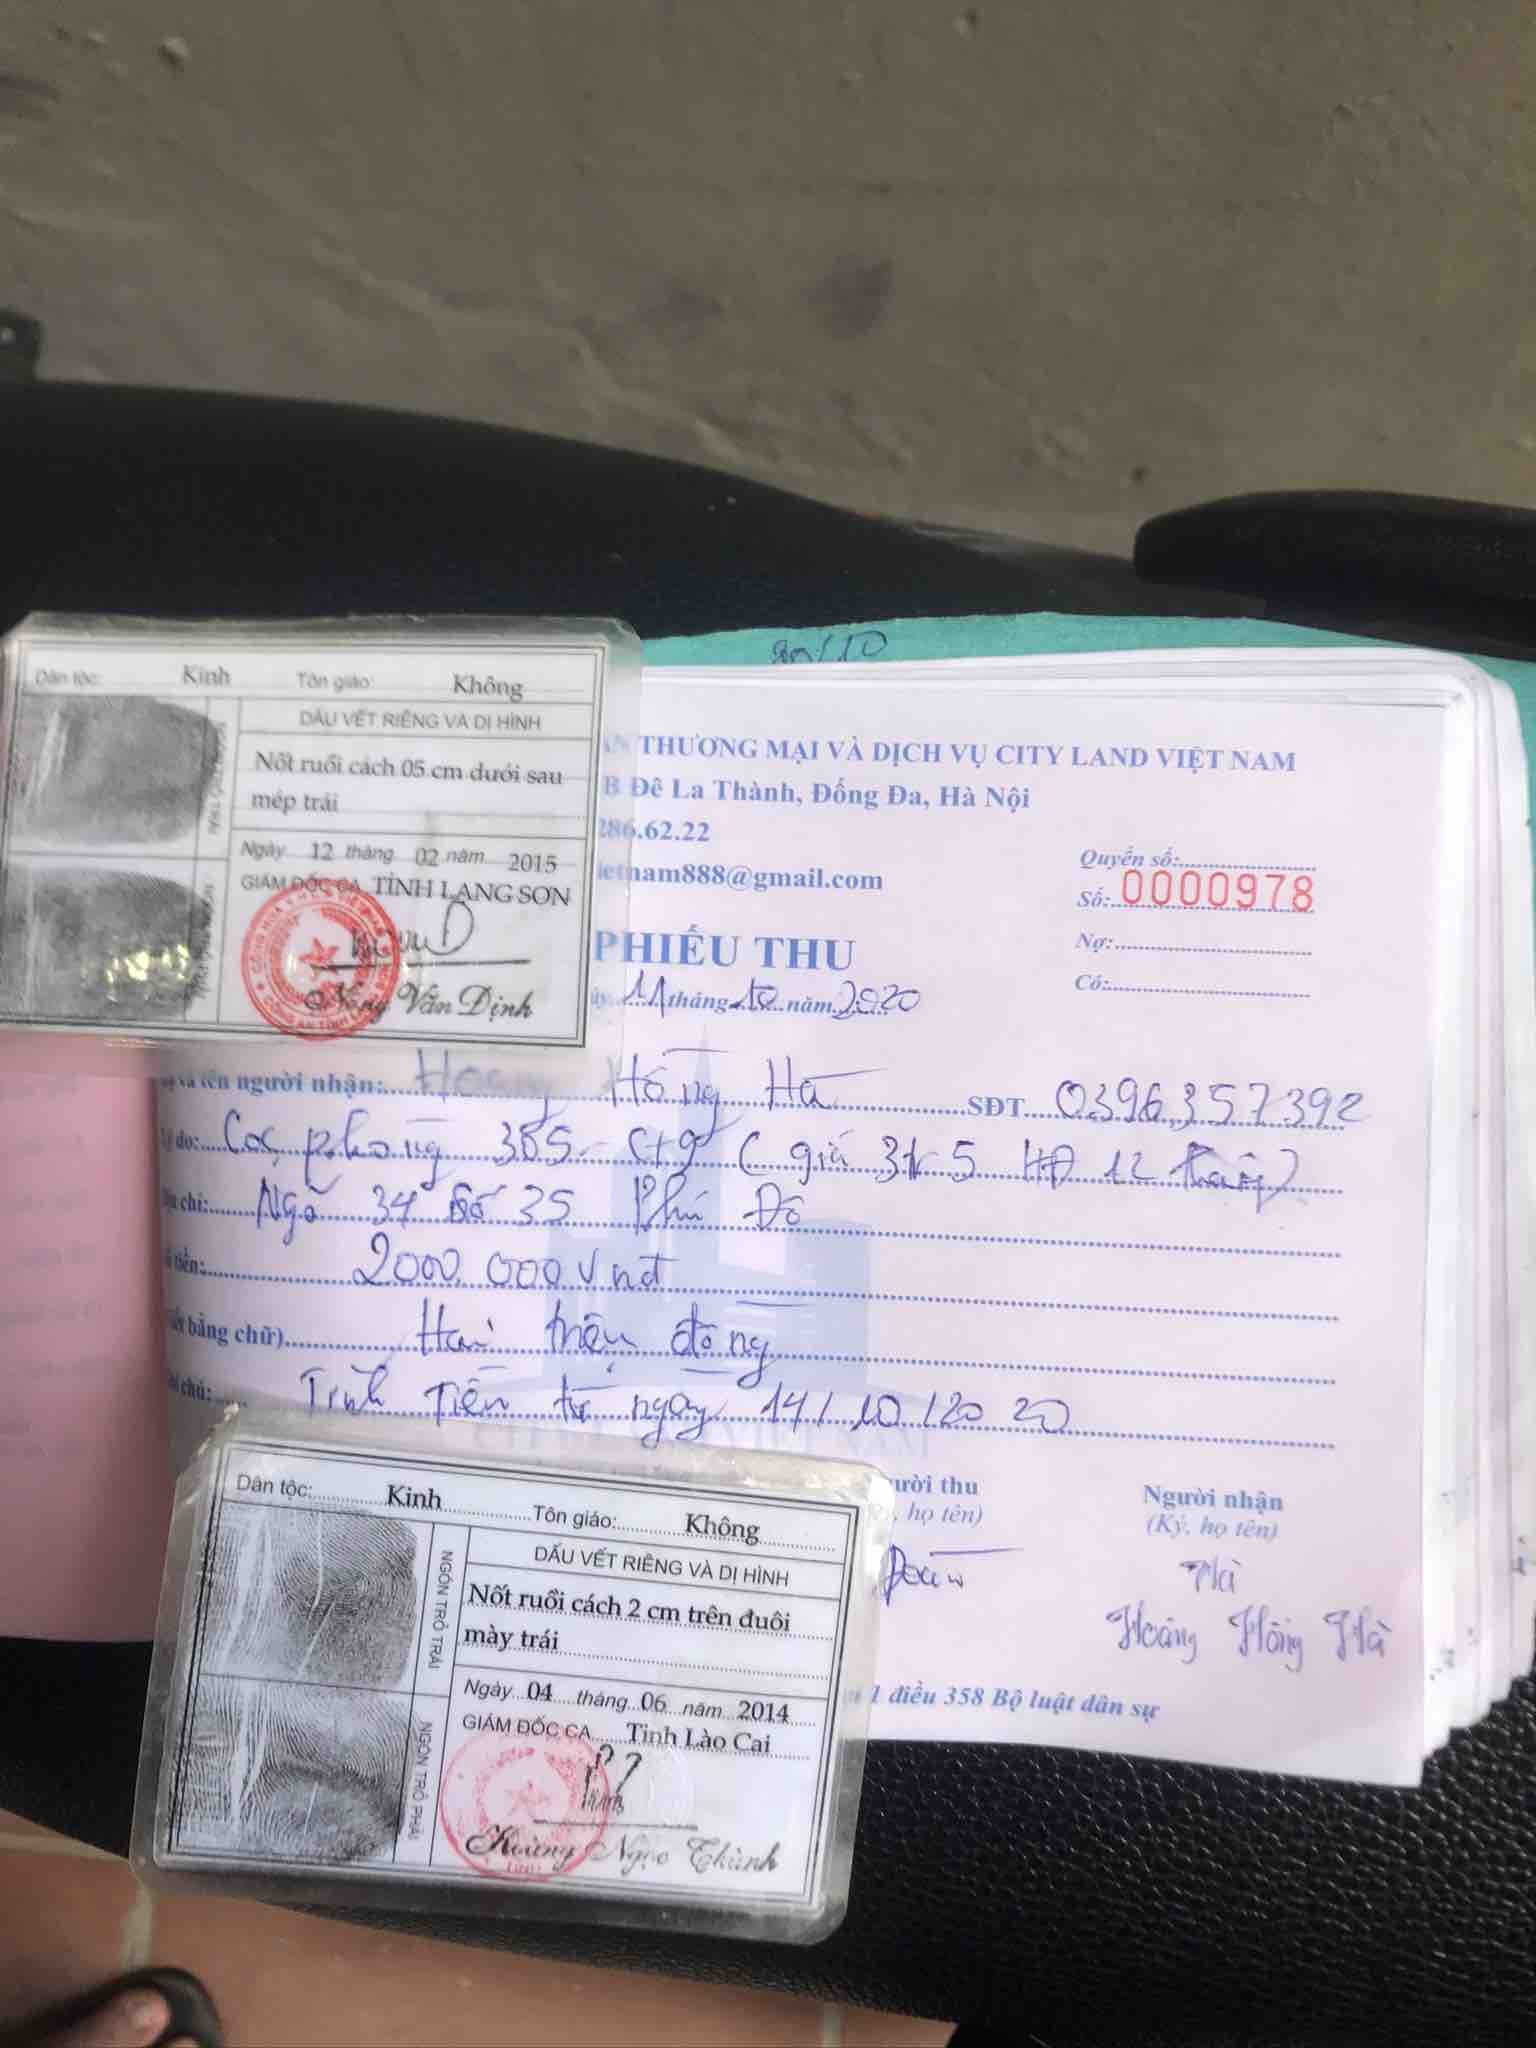 20/10
Dân tộc: Kinh Tôn giáo: Không
DẤU VẾT RIÊNG VÀ DỊ HÌNH
Nốt ruồi cách 05 cm dưới sau
mép trái
Ngày 12 tháng 02 năm 2015
GIÁM ĐỐC CA TỈNH LẠNG SƠN
Nông Văn Định
THƯƠNG MẠI VÀ DỊCH VỤ CITY LAND VIỆT NAM
B Đê La Thành, Đống Đa, Hà Nội
286.62.22
ietnam888@gmail.com
Quyển số:
Số: 0000978
Nợ:
Có:
PHIẾU THU
11 tháng 10 năm 2020
và tên người nhận: Hoàng Hồng Hà SĐT 0396357392
do: Cọc phòng 305 - (giá 3tr5 HĐ 12 tháng)
chỉ: Ngõ 34 số 35 Phú Đô
tiền: 2000.000 vnđ
bằng chữ) Hai triệu đồng
chú: Tính tiền từ ngày 14/10/2020
VIỆT NAM
ười thu
, họ tên)
Người nhận
(Ký, họ tên)
Hà
Hoàng Hồng Hà
1 điều 358 Bộ luật dân sự
Dân tộc: Kinh Tôn giáo: Không
DẤU VẾT RIÊNG VÀ DỊ HÌNH
NGÓN TRỎ TRÁI
Nốt ruồi cách 2 cm trên đuôi
mày trái
NGÓN TRỎ PHẢI
Ngày 04 tháng 06 năm 2014
GIÁM ĐỐC CA Tỉnh Lào Cai
Ngọc Thành